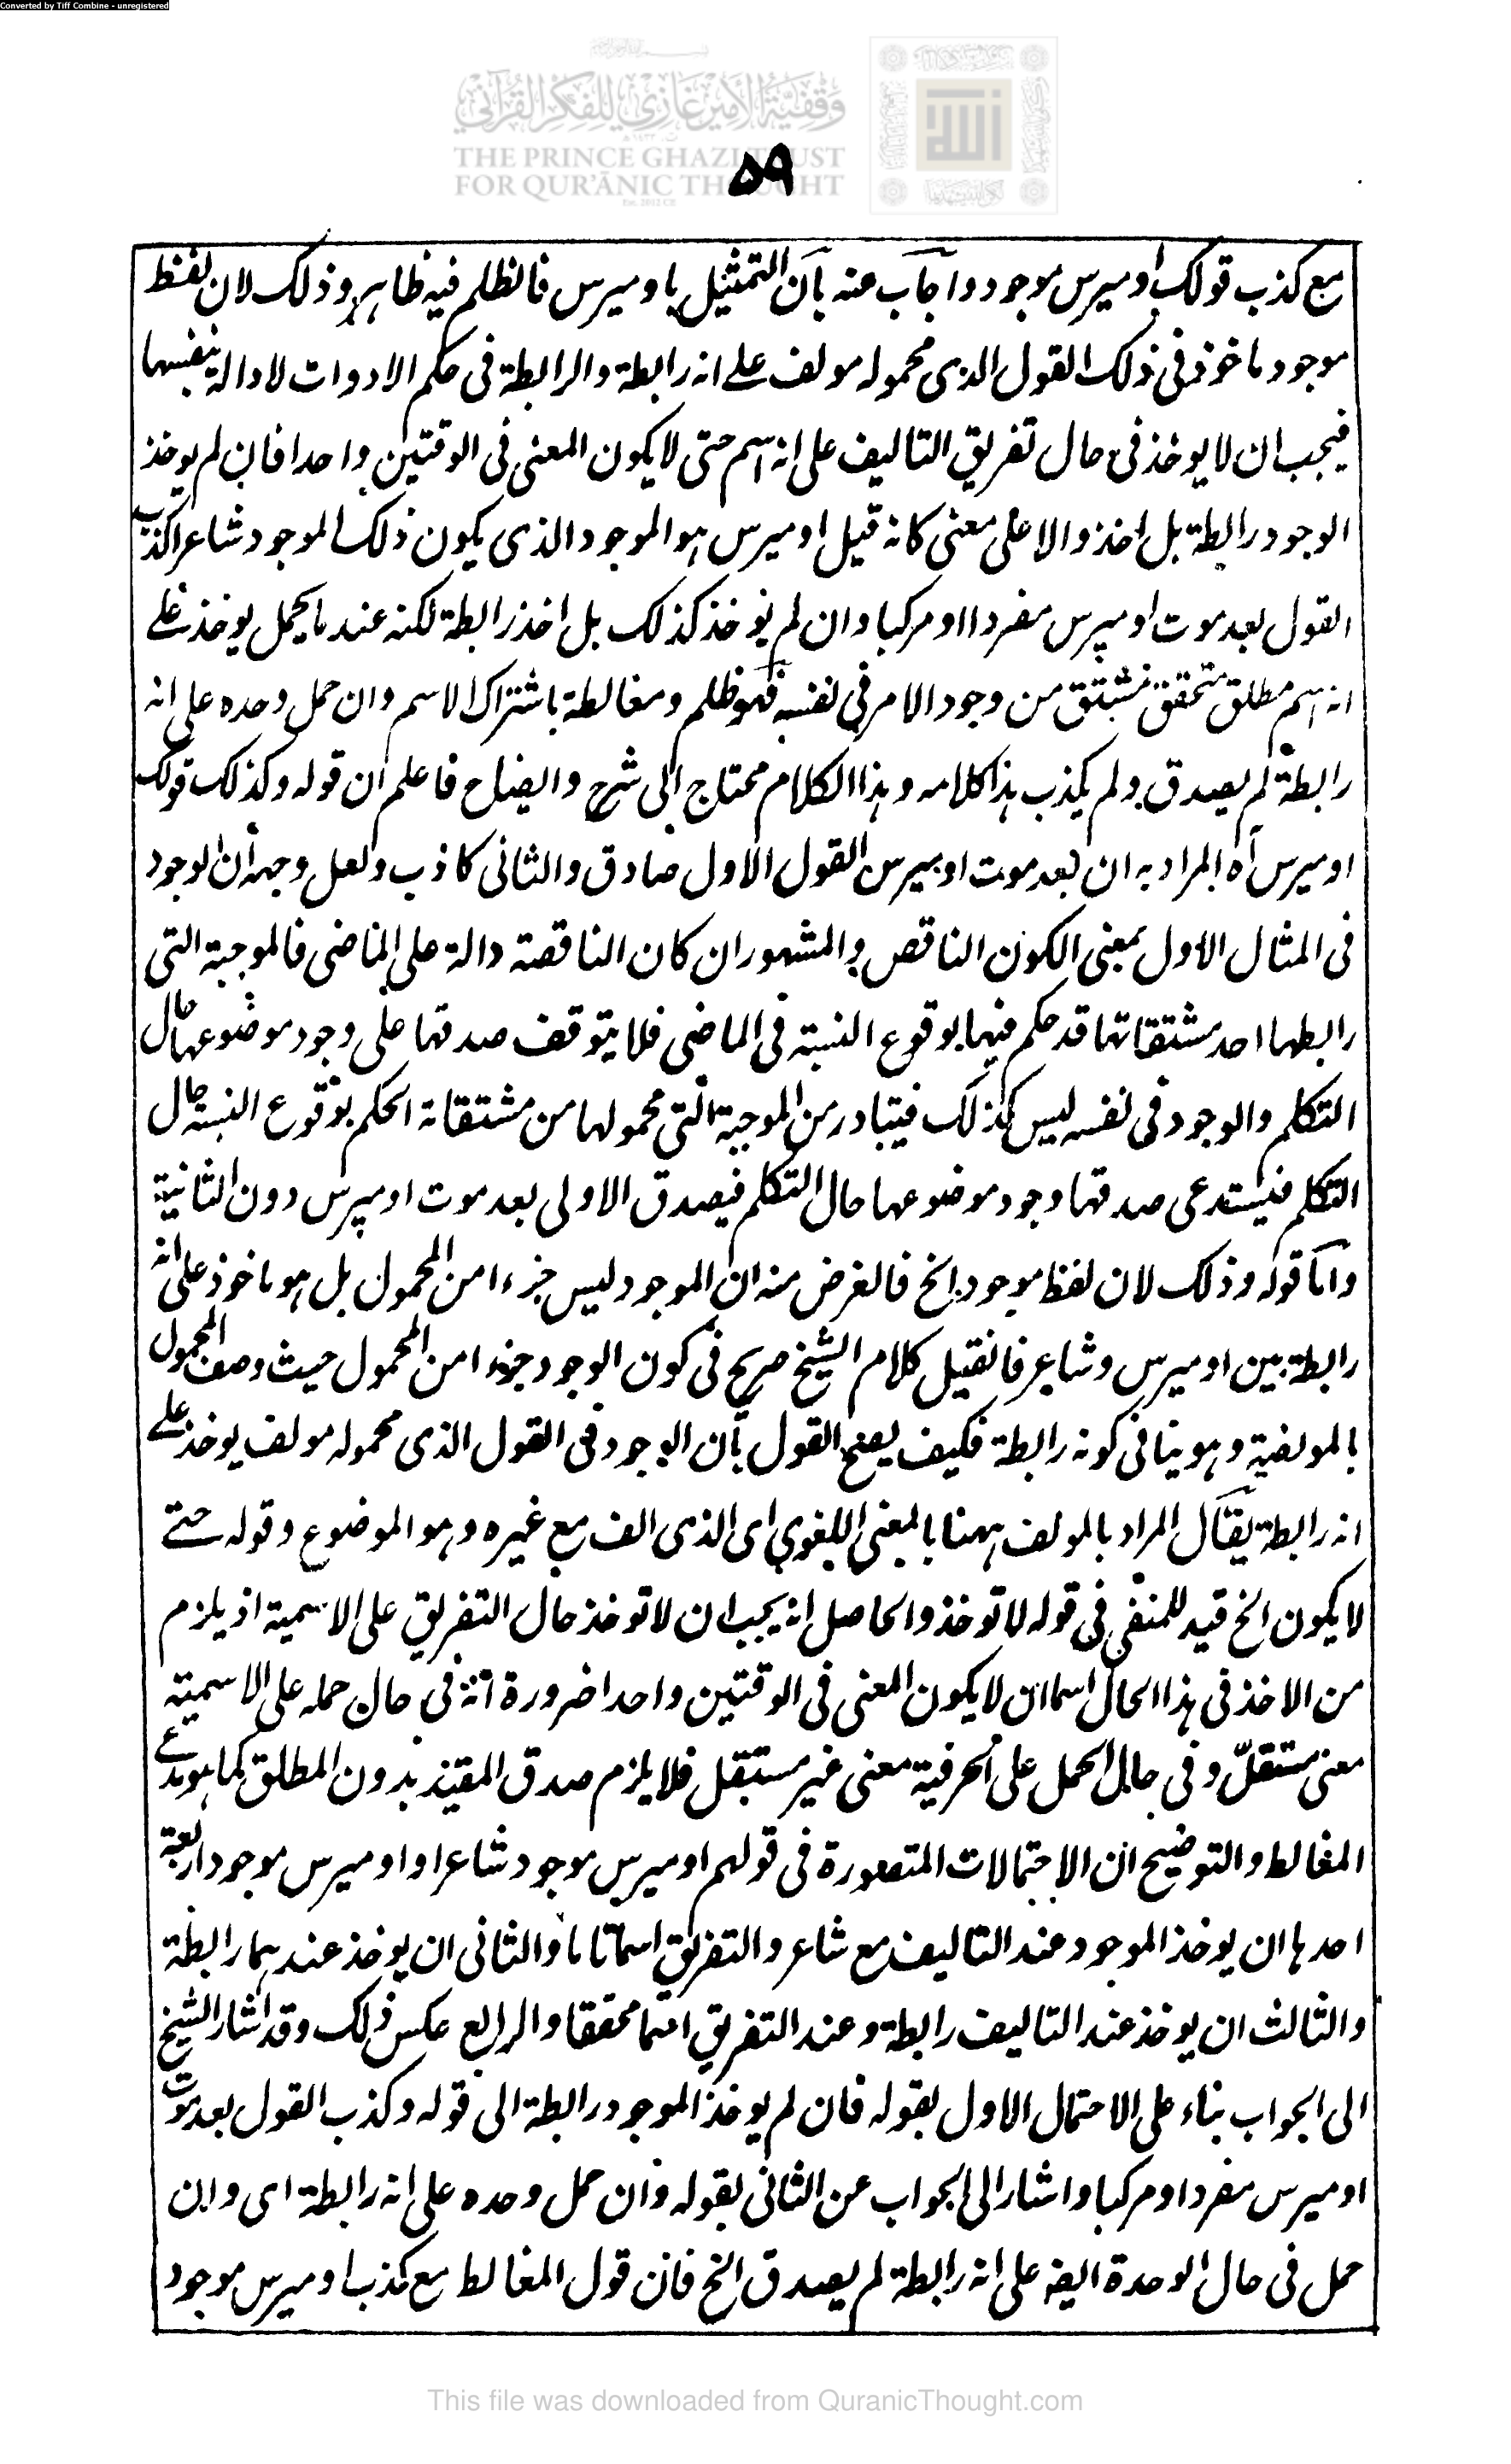 Converted by Tiff Combine - unregistered
وقفية الأمير غازي للفكر القرآني
THE PRINCE GHAZI TRUST
FOR QUR'ĀNIC THOUGHT
الله
۵۹
مع كذب قولك اوميرس موجود واجاب عنه بان التمثيل باوميرس فالظلم فيه ظاهر وذلك لان لفظ
موجود ماخوذ فى ذلك القول الذى محموله مولف على انه رابطة والرابطة فى حكم الادوات لا دالة بنفسها
فيجب ان لا يوخذ فى حال تفريق التاليف على انه اسم حتى لا يكون المعنى فى الوقتين واحدا فان لم يوخذ
الوجود رابطة بل اخذ والا على معنى كانه قيل اوميرس هو الموجود الذى يكون ذلك الموجود شاعرا كذب
القول بعد موت اوميرس مفردا او مركبا وان لم يوخذ كذلك بل اخذ رابطة لكنه عند ما يحمل يوخذ على
انه اسم مطلق متحقق مشتق من وجود الامر فى نفسه فهو ظلم ومغالطة باشتراك الاسم وان حمل وحده على انه
رابطة لم يصدق ولم يكذب هذا كلامه وهذا الكلام محتاج الى شرح وايضاح فاعلم ان قوله وكذلك قولك
اوميرس آه المراد به ان بعد موت اوميرس القول الاول صادق والثانى كاذب ولعل وجهه ان الوجود
فى المثال الاول بمعنى الكون الناقص والمشهور ان كان الناقصة دالة على الماضى فالموجبة التى
رابطها احد مشتقاتها قد حكم فيها بوقوع النسبة فى الماضى فلا يتوقف صدقها على وجود موضوعها حال
التكلم والوجود فى نفسه ليس كذلك فيتبادر من الموجبة التى محمولها من مشتقاته الحكم بوقوع النسبة حال
التكلم فيستدعى صدقها وجود موضوعها حال التكلم فيصدق الاولى بعد موت اوميرس دون الثانية
واما قوله وذلك لان لفظ موجود الخ فالغرض منه ان الموجود ليس جزءا من المحمول بل هو ماخوذ على انه
رابطة بين اوميرس وشاعر فان قيل كلام الشيخ صريح فى كون الوجود جزءا من المحمول حيث وصف المحمول
بالمولفية وهو ينافى كونه رابطة فكيف يصح القول بان الوجود فى القول الذى محموله مولف يوخذ على
انه رابطة يقال المراد بالمولف ههنا بالمعنى اللغوى اى الذى الف مع غيره وهو الموضوع وقوله حتى
لا يكون الخ قيد للمنفى فى قوله لا توخذ والحاصل انه يجب ان لا توخذ حال التفريق على الاسمية اذ يلزم
من الاخذ فى هذا الحال اسما ان لا يكون المعنى فى الوقتين واحدا ضرورة انه فى حال حمله على الاسمية
معنى مستقل وفى حال الحمل على الحرفية معنى غير مستقل فلا يلزم صدق المقيد بدون المطلق كما هو مدعى
المغالط والتوضيح ان الاحتمالات المتصورة فى قولهم اوميرس موجود شاعرا واوميرس موجود اربعة
احدها ان يوخذ الموجود عند التاليف مع شاعر والتفريق اسما تاما والثانى ان يوخذ عندهما رابطة
والثالث ان يوخذ عند التاليف رابطة وعند التفريق اسما محققا والرابع عكس ذلك وقد اشار الشيخ
الى الجواب بناء على الاحتمال الاول بقوله فان لم يوخذ الموجود رابطة الى قوله وكذب القول بعد موت
اوميرس مفردا ومركبا واشار الى الجواب عن الثانى بقوله وان حمل وحده على انه رابطة اى وان
حمل فى حال الوحدة ايضه على انه رابطة لم يصدق الخ فان قول المغالط مع كذب اوميرس موجود
This file was downloaded from QuranicThought.com